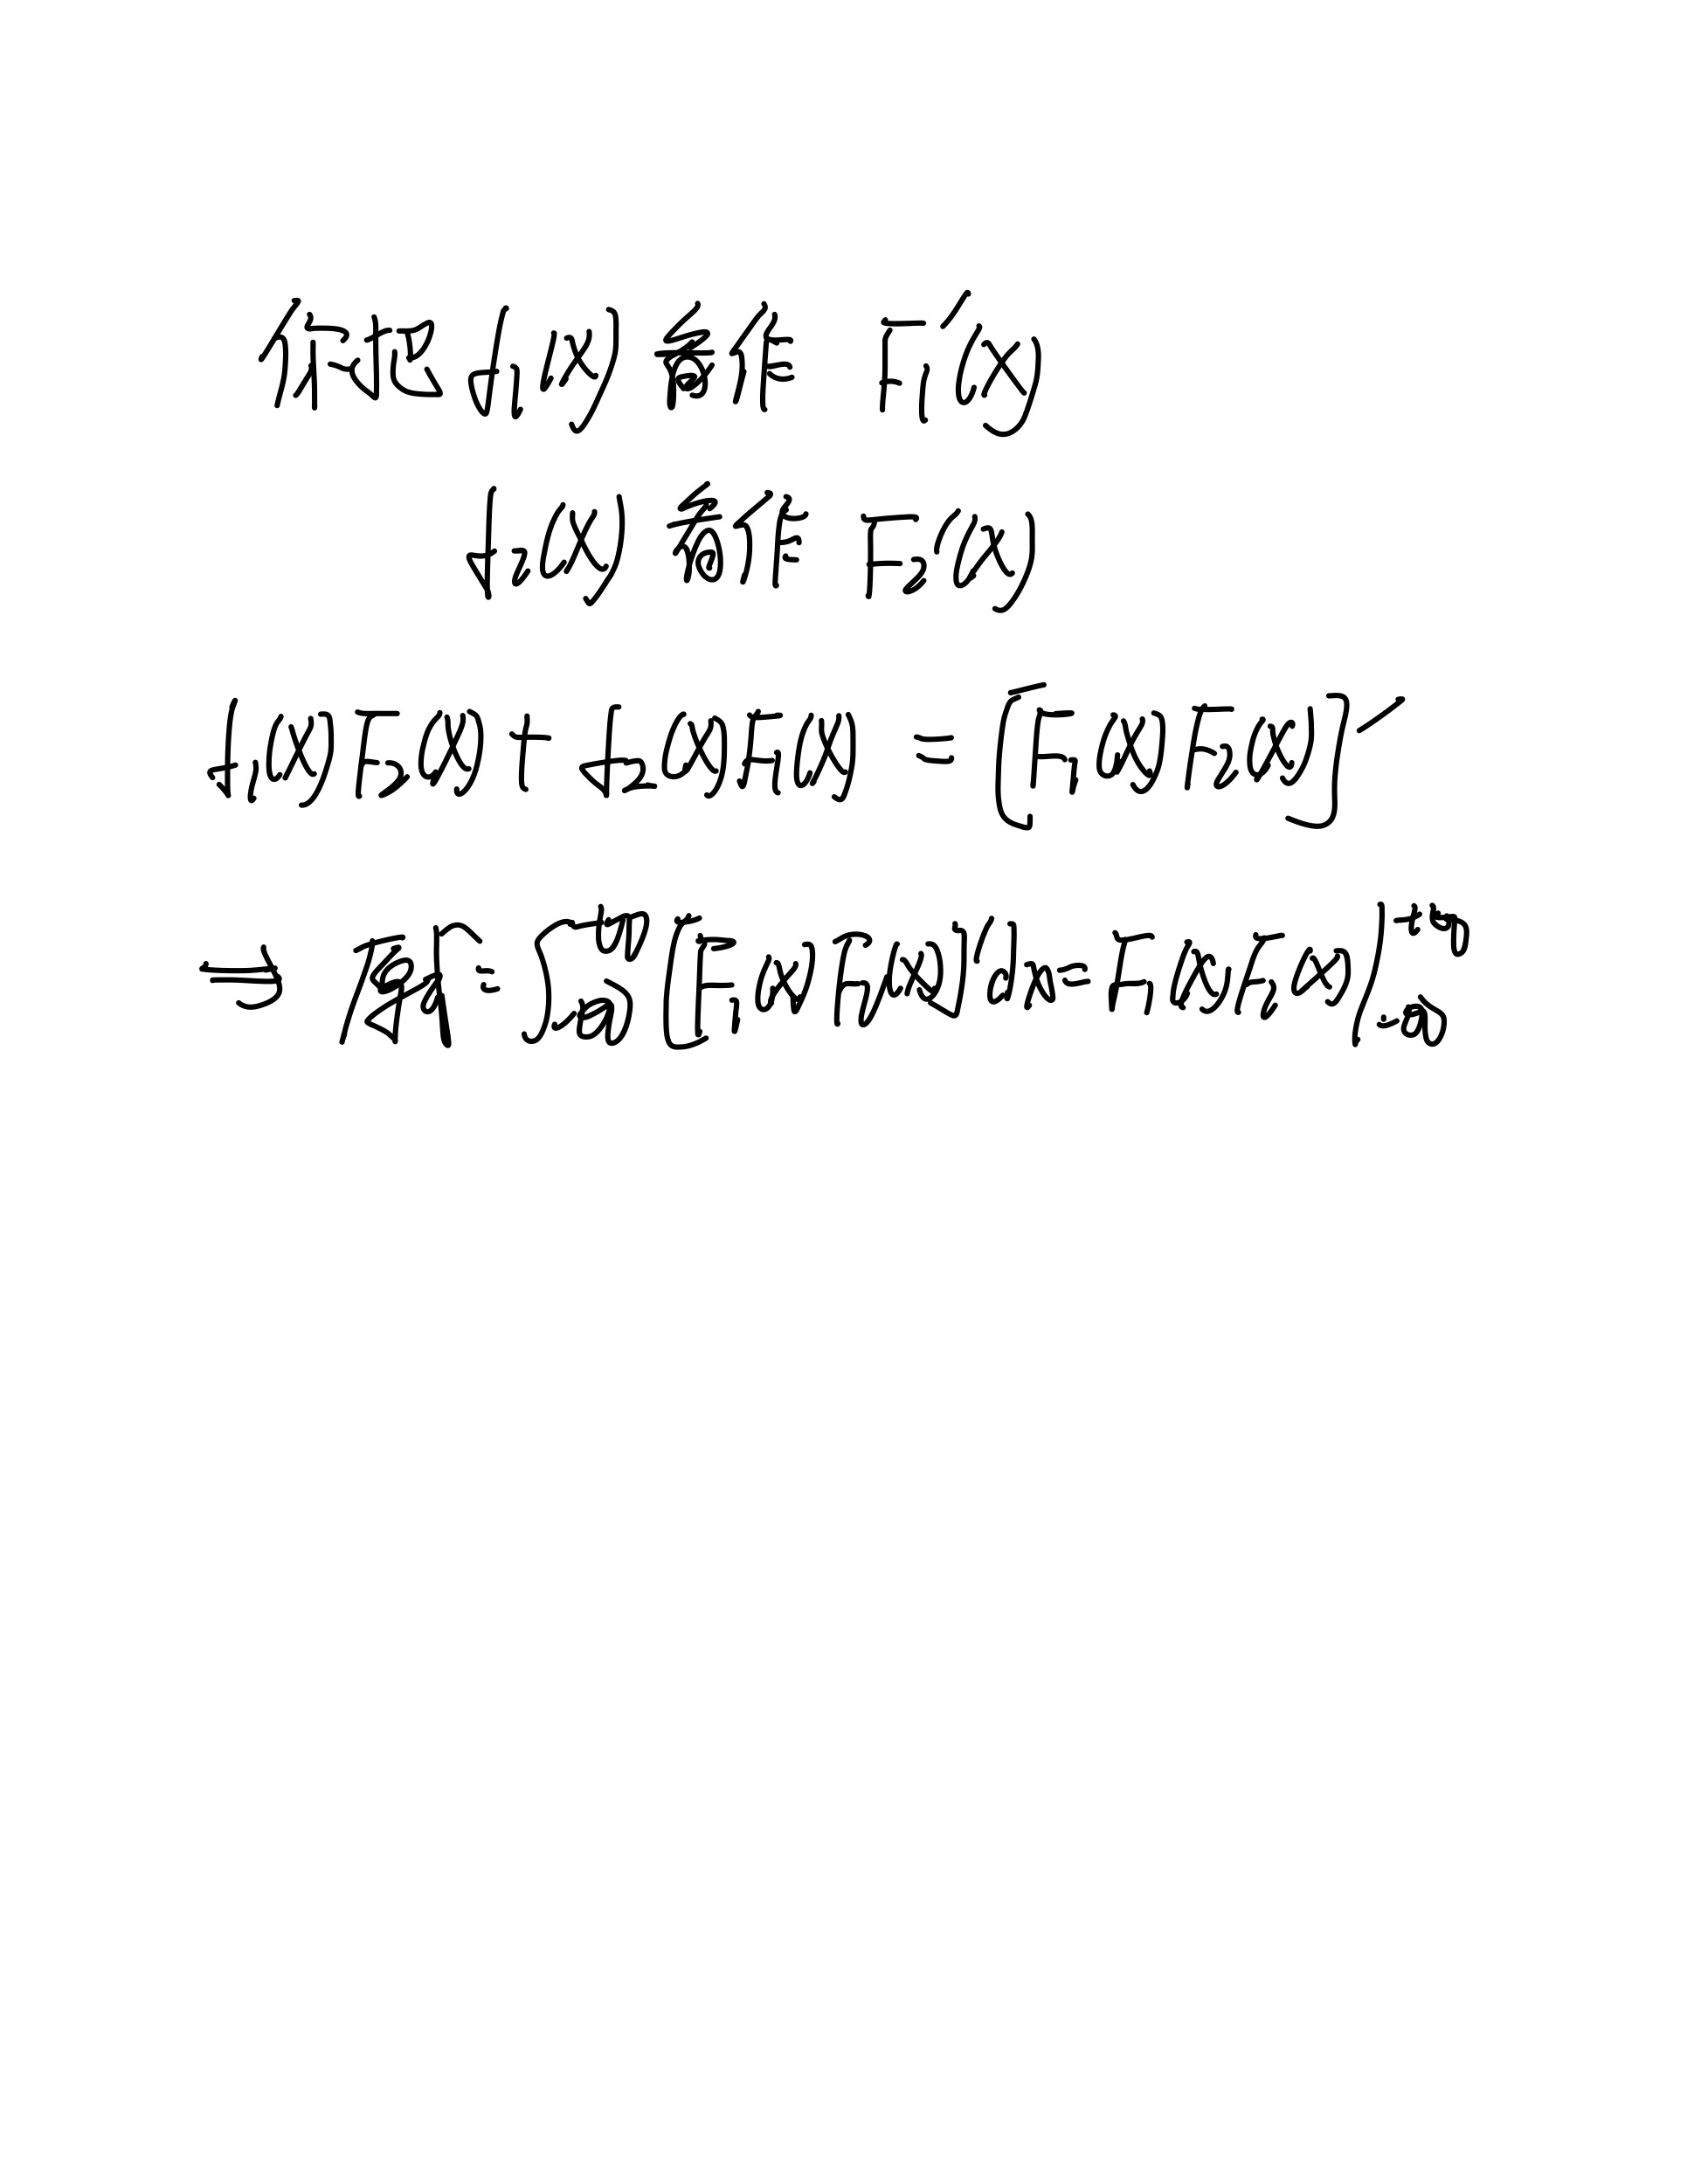 你把 f₁(x) 看作 F₁′(x)
f₂(x) 看作 F₂′(x)
f₁(x)F₂(x) + f₂(x)F₁(x) = [F₁(x)F₂(x)]′
⇒ 原式 = ∫₋∞⁺∞ [F₁(x)F₂(x)]′dx = F₁(x)F₂(x)|₋∞⁺∞